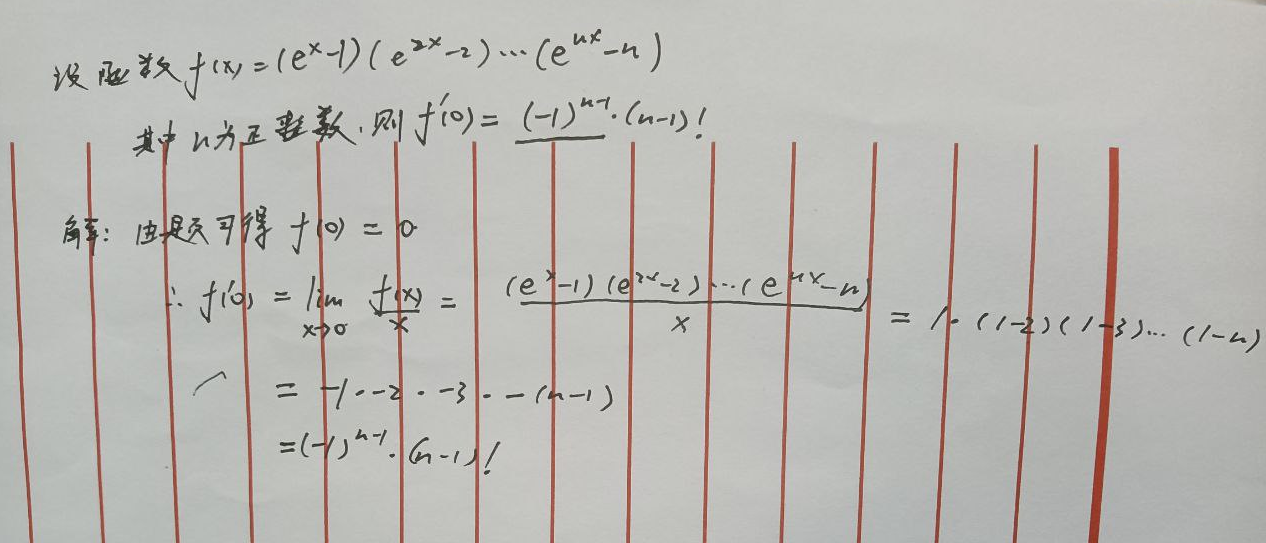 设函数 f(x) = (eˣ-1)(e²ˣ-2)⋯(eⁿˣ-n)
其中n为正整数,则 f'(0) = (-1)ⁿ⁻¹·(n-1)!
解: 由题可得 f(0) = 0
∴ f'(0) = lim x→0 f(x)/x = (eˣ-1)(e²ˣ-2)⋯(eⁿˣ-n)/x = 1·(1-2)(1-3)⋯(1-n)
= -1·-2·-3·-(n-1)
= (-1)ⁿ⁻¹·(n-1)!